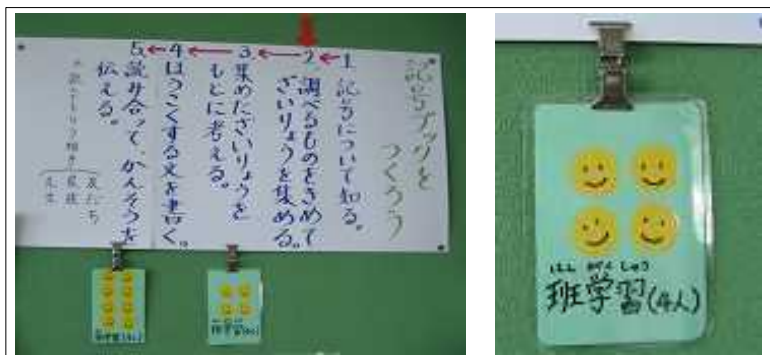 記号ブックを
つくろう
1 記号について知る。
2 調べるものをきめて
ざいりょうを集める。
3 集めたざいりょうを
もとに考える。
4 ほうこくする文を書く。
5 読み合って、かんそうを
伝える。
友だち
家族
先生
班学習(4人)
はん がくしゅう
班学習(4人)